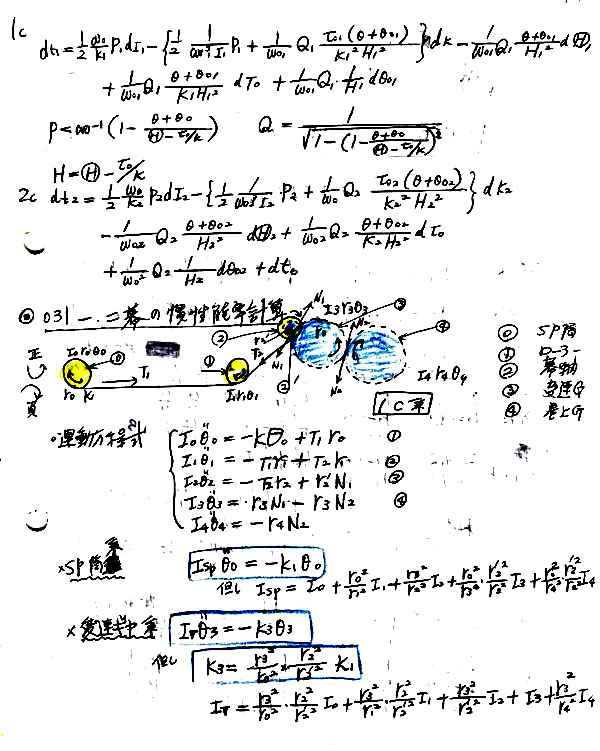 1c
dt₁ = 1/2 ω₀/K₁ P₁ dI₁ − {1/2 1/(ω₀₁³ I₁) P₁ + 1/ω₀₁ Q₁ τ₀₁(θ+θ₀₁)/(K₁² H₁²)} dK − 1/ω₀₁ Q₁ (θ+θ₀₁)/H₁² dⒽ₁
+ 1/ω₀₁ Q₁ (θ+θ₀₁)/(K₁H₁²) dτ₀ + 1/ω₀₁ Q₁ · 1/H₁ dθ₀₁
P = cos⁻¹(1 − (θ+θ₀)/(Ⓗ − τ₀/K)) Q = 1/√(1 − (1 − (θ+θ₀)/(Ⓗ − τ₀/K))²)
H = Ⓗ − τ₀/K
2c dt₂ = 1/2 ω₀/K₂ P₂ dI₂ − {1/2 1/(ω₀³ I₂) P₂ + 1/ω₀ Q₂ τ₀₂(θ+θ₀₂)/(K₂² H₂²)} dK₂
− 1/ω₀₂ Q₂ (θ+θ₀₂)/H₂² dⒽ₂ + 1/ω₀₂ Q₂ (θ+θ₀₂)/(K₂H₂²) dτ₀
+ 1/ω₀² Q₂ 1/H₂ dθ₀₂ + dt₀
031 一.二番の慣性能率計算
正
負
I₀ r₀ θ₀
r₀ K₁
⓪
T₁
①
I₁ r₁ θ₁
②
r₂
T₂
N₁
N₁
r₂'
I₃ r₃ θ₃
③
N₂
N₂
④
I₄ r₄ θ₄
1C系
⓪ SP筒
① ローラー
② 番軸
③ 変速G
④ 巻上G
○運動方程式
I₀θ̈₀ = −Kθ₀ + T₁r₀ ①
I₁θ̈₁ = −T₁r₁ + T₂r₁ ②
I₂θ̈₂ = −T₂r₂ + r₂'N₁ ③
I₃θ̈₃ = r₃N₁ − r₃N₂ ④
I₄θ̈₄ = −r₄N₂
×SP筒系
I_SP θ̈₀ = −K₁θ₀
但し I_SP = I₀ + r₀²/r₁² I₁ + r₀²/r₂² I₂ + r₀²/r₃² · r₂'²/r₂² I₃ + r₀²/r₄² r₂'²/r₂² I₄
×変速G系
I_T θ̈₃ = −K₃θ₃
但し
K₃ = r₃²/r₀² · r₂²/r₂'² K₁
I_T = r₃²/r₀² · r₂²/r₂'² I₀ + r₃²/r₁² · r₂²/r₂'² I₁ + r₃²/r₂'² I₂ + I₃ + r₃²/r₄² I₄